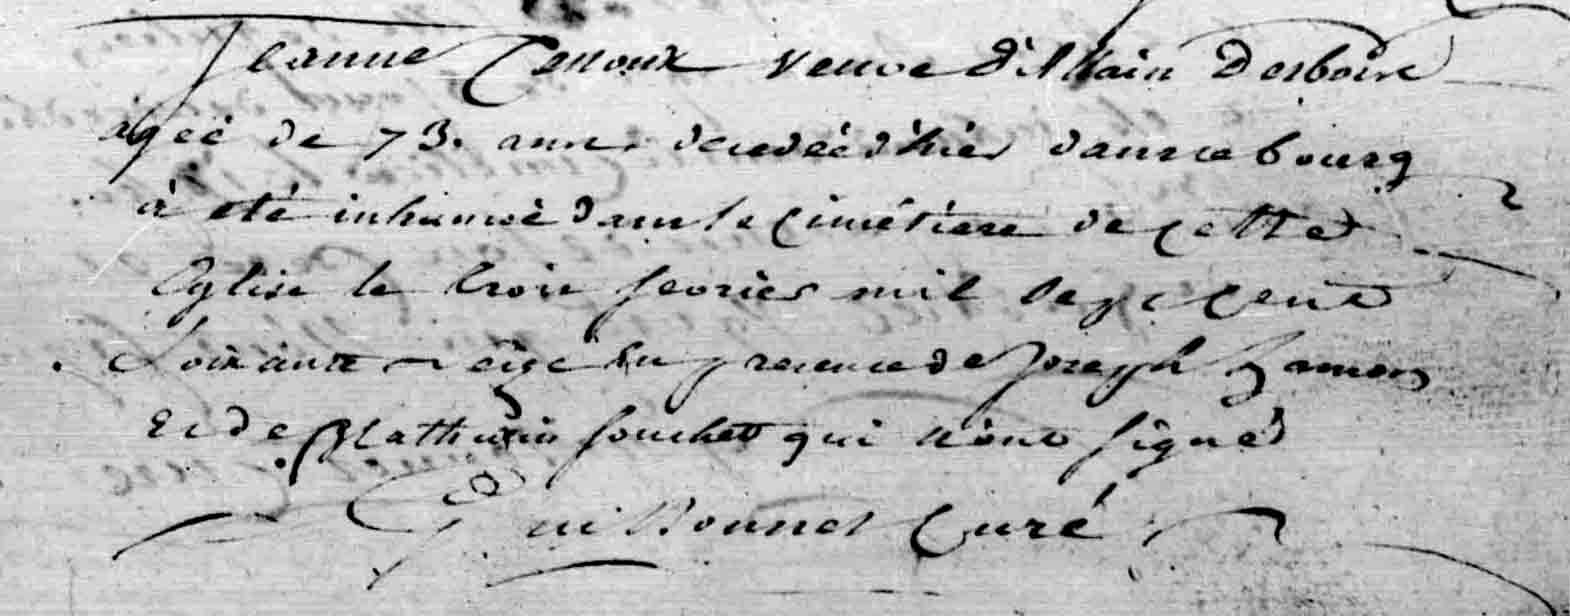 Jeanne veuve d'Allain Desbois
agée de 73. ans decedéé d'hier dans ce bourg
à eté inhumée dans le cimétiere de cette
Eglise le trois fevrier mil sept cent
Soixante seize En presence de Joseph hamon
Et de Mathurin fouchet qui n'ont signé
Guillonnet Curé